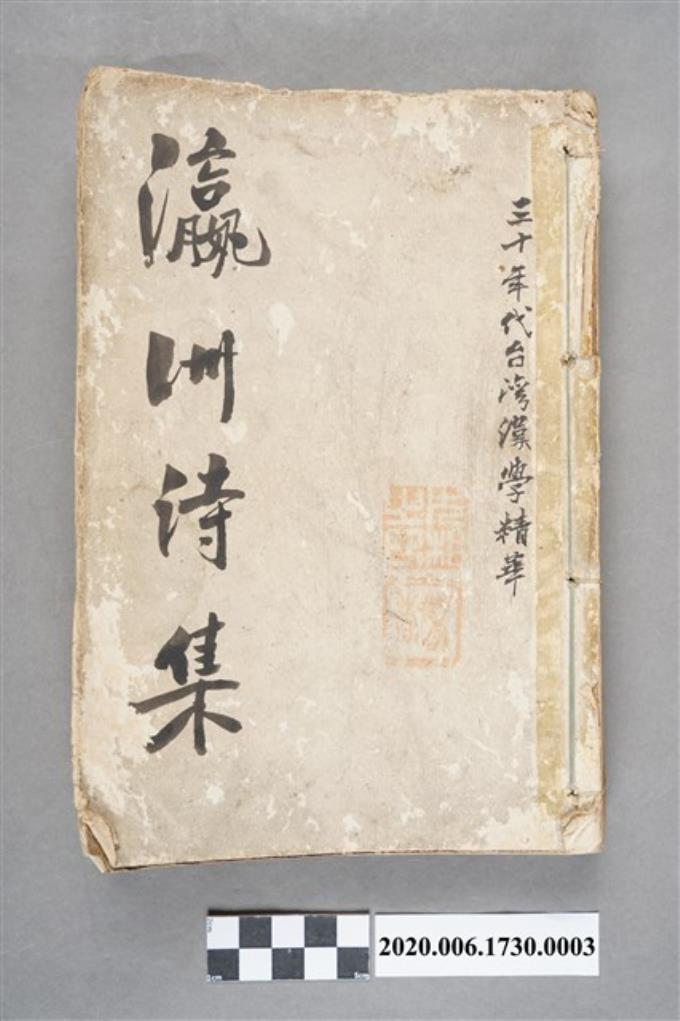 三十年代台湾漢学精華
瀛洲诗集
2020.006.1730.0003